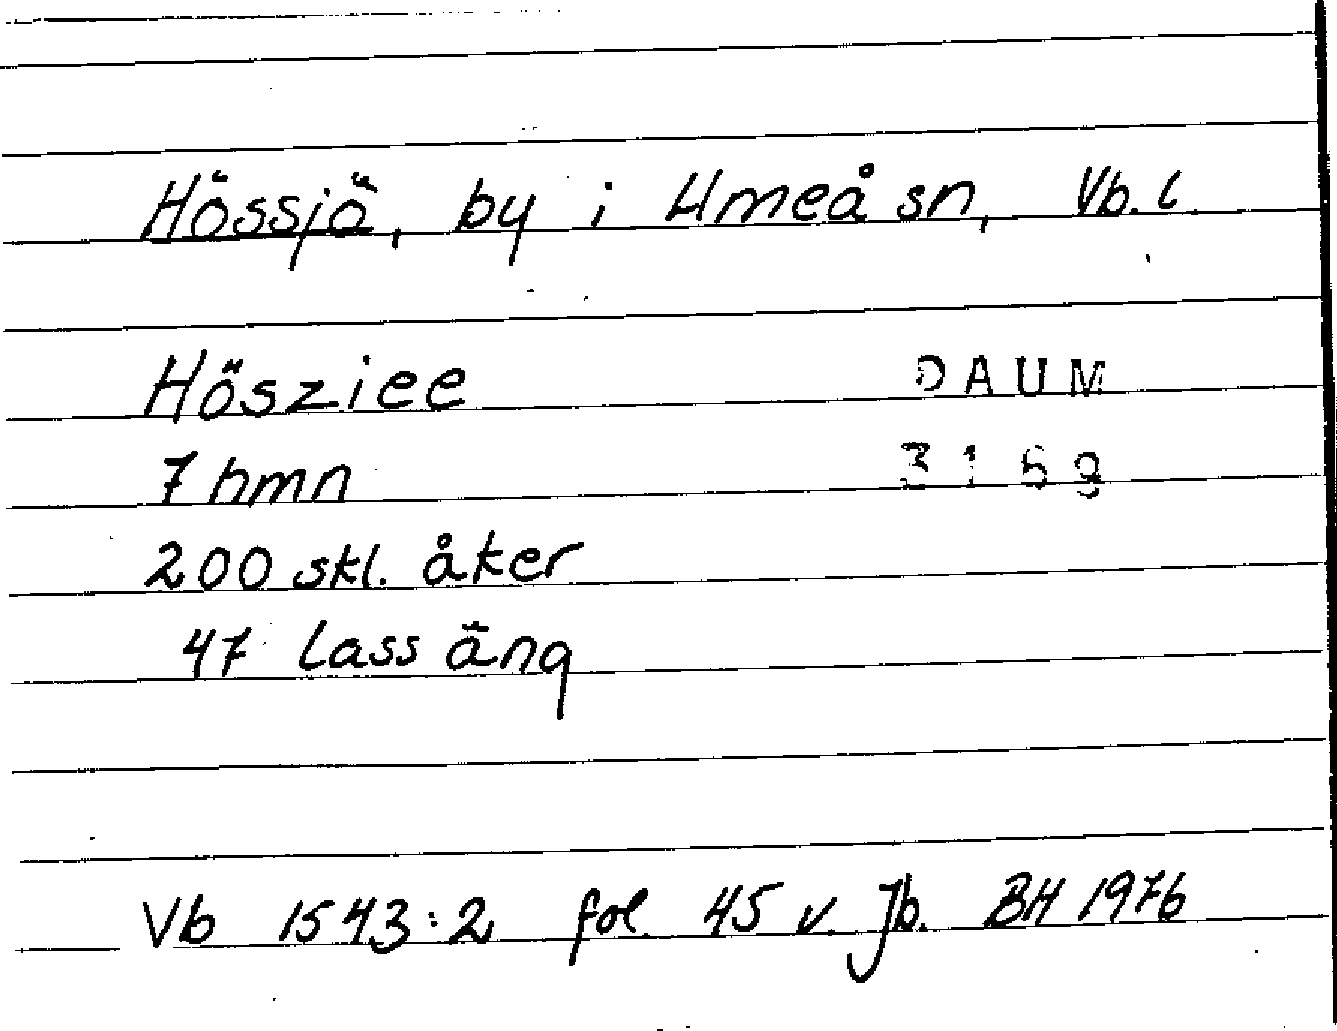 Hössjö, by i Umeå sn, Vb. l
Hösziee DAUM
7 hmn 3169
200 skl. åker
47 lass äng
Vb 1543:2 fol. 45 v. Jb. BH 1976